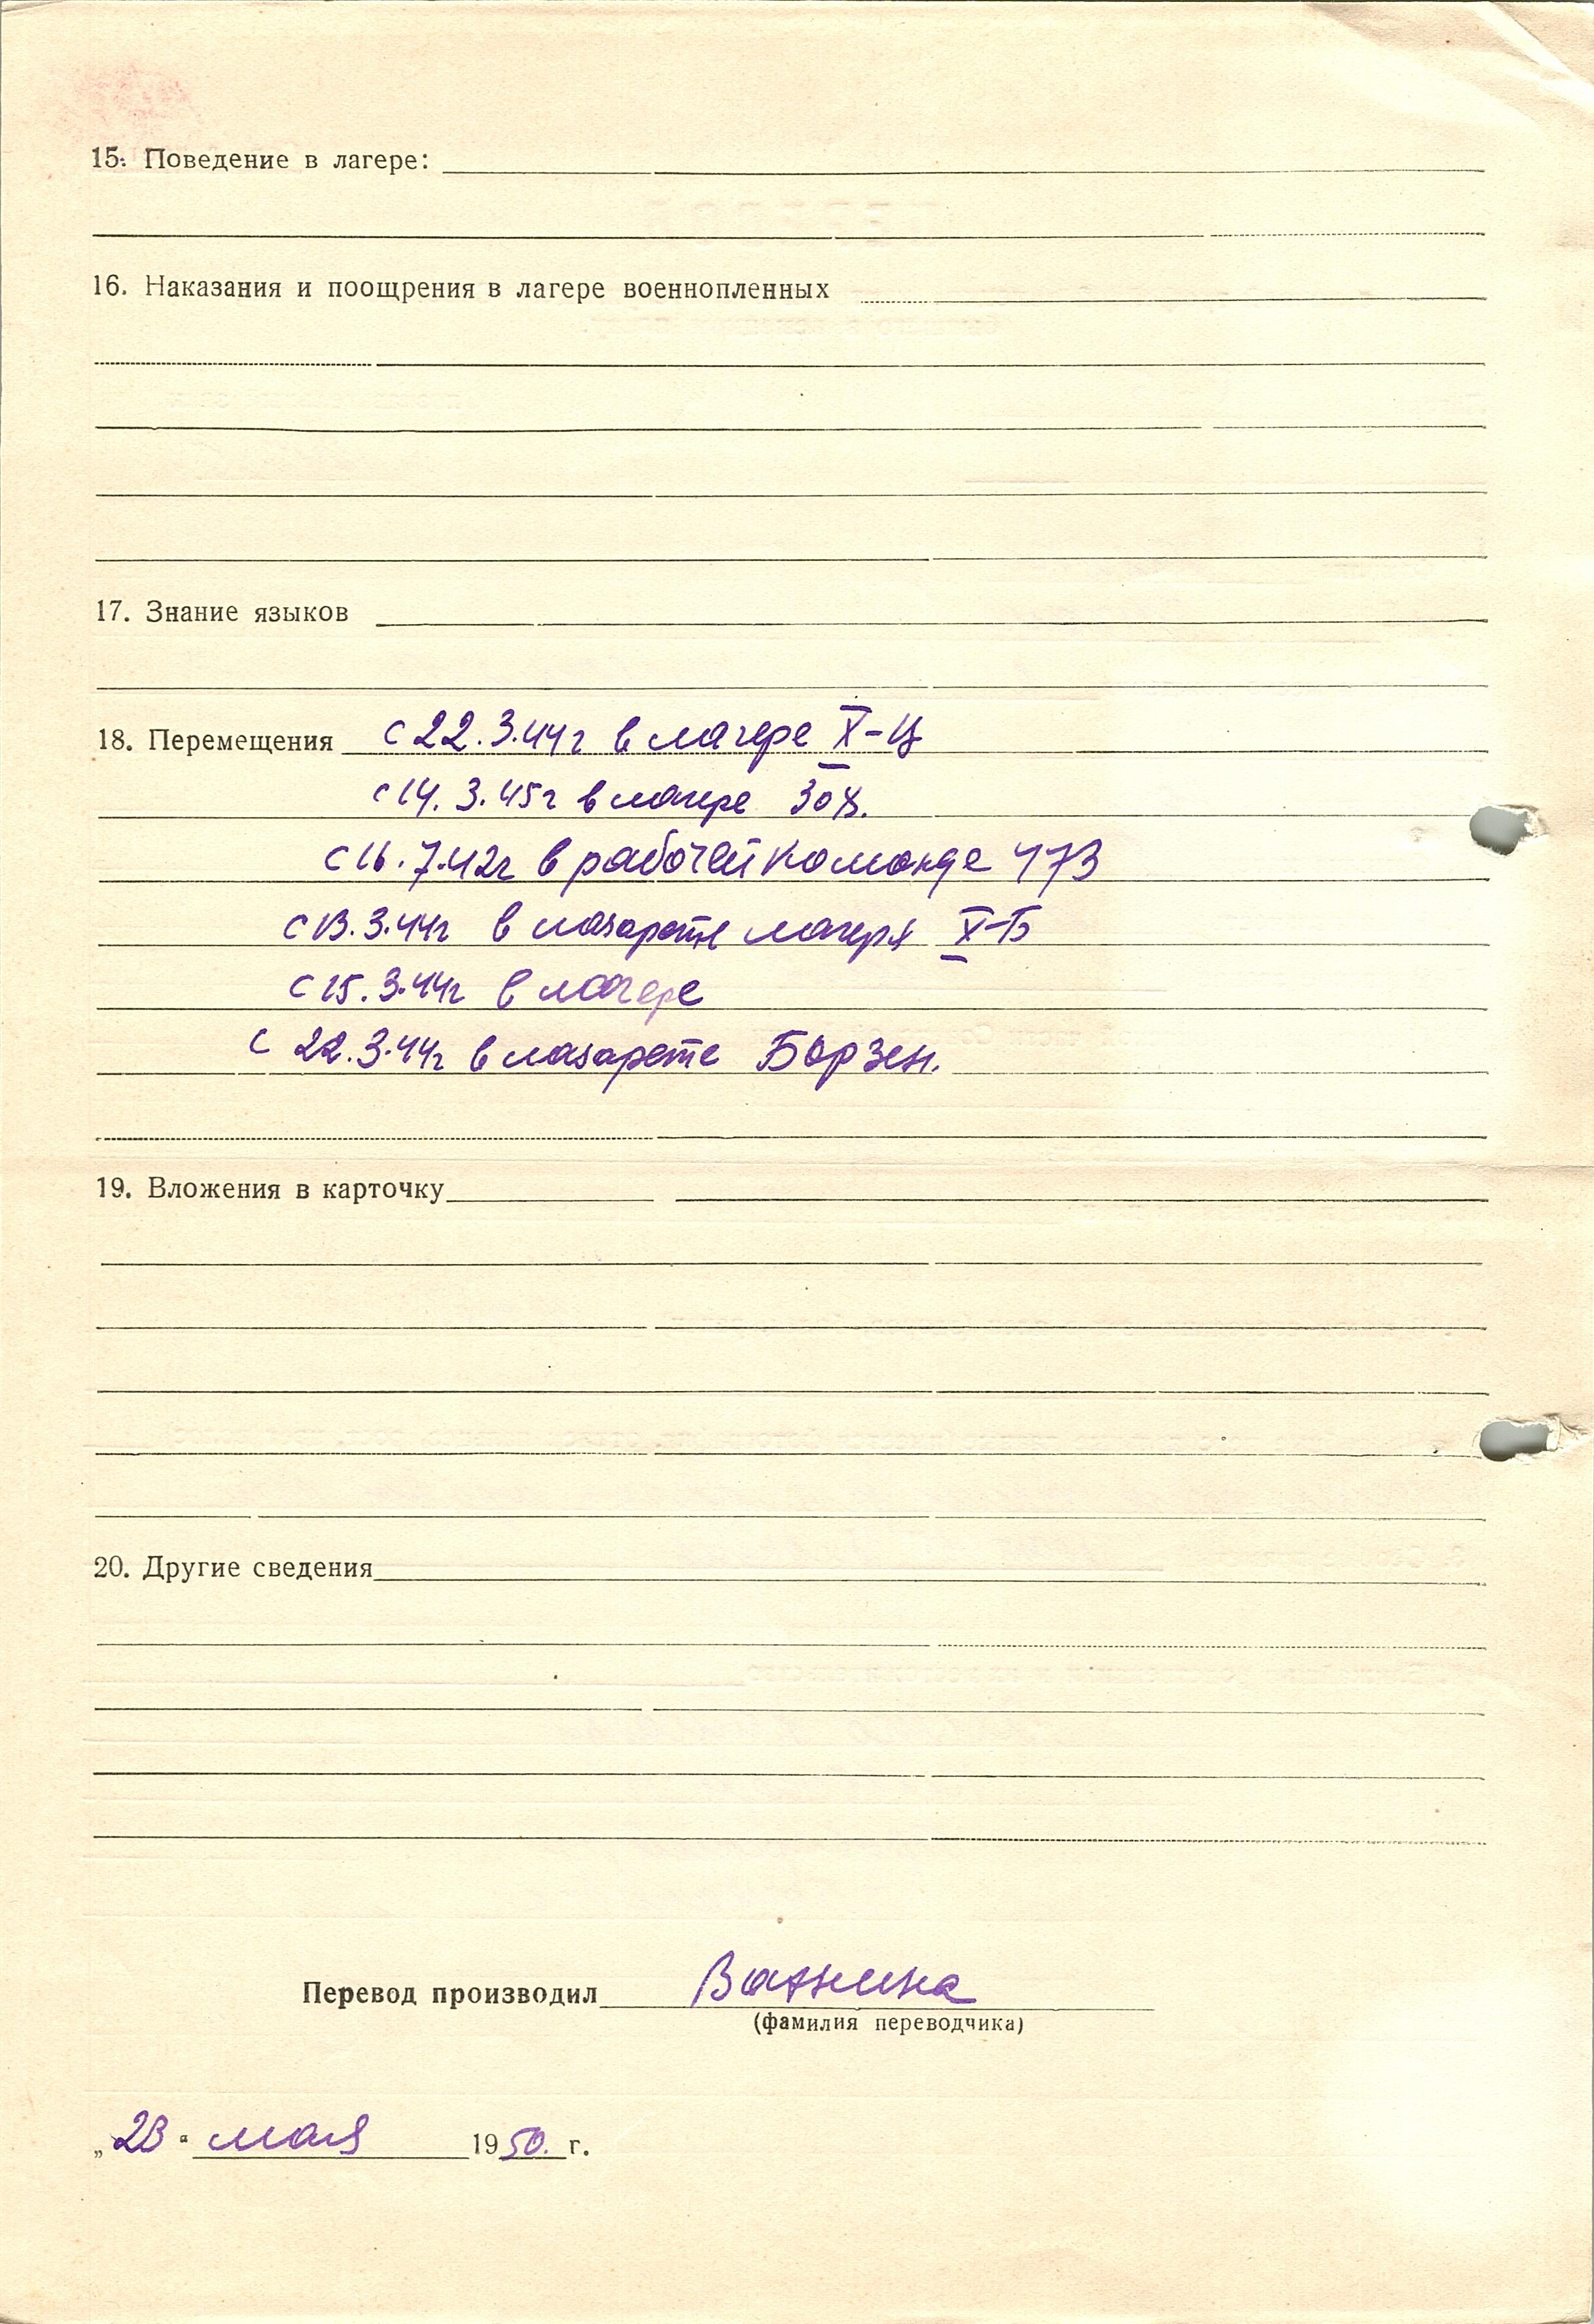 15. Поведение в лагере:
16. Наказания и поощрения в лагере военнопленных
17. Знание языков
18. Перемещения с 22.3.44г в лагере X-Ц
с 14.3.45г в лагере
с 16.7.42г в рабочей команде 473
с 13.3.44г в лазарете лагеря X-Б
с 15.3.44г в лагере
с 22.3.44г в лазарете Борзен.
19. Вложения в карточку
20. Другие сведения
Перевод производил Ванина
(фамилия переводчика)
„23" мая 1950. г.